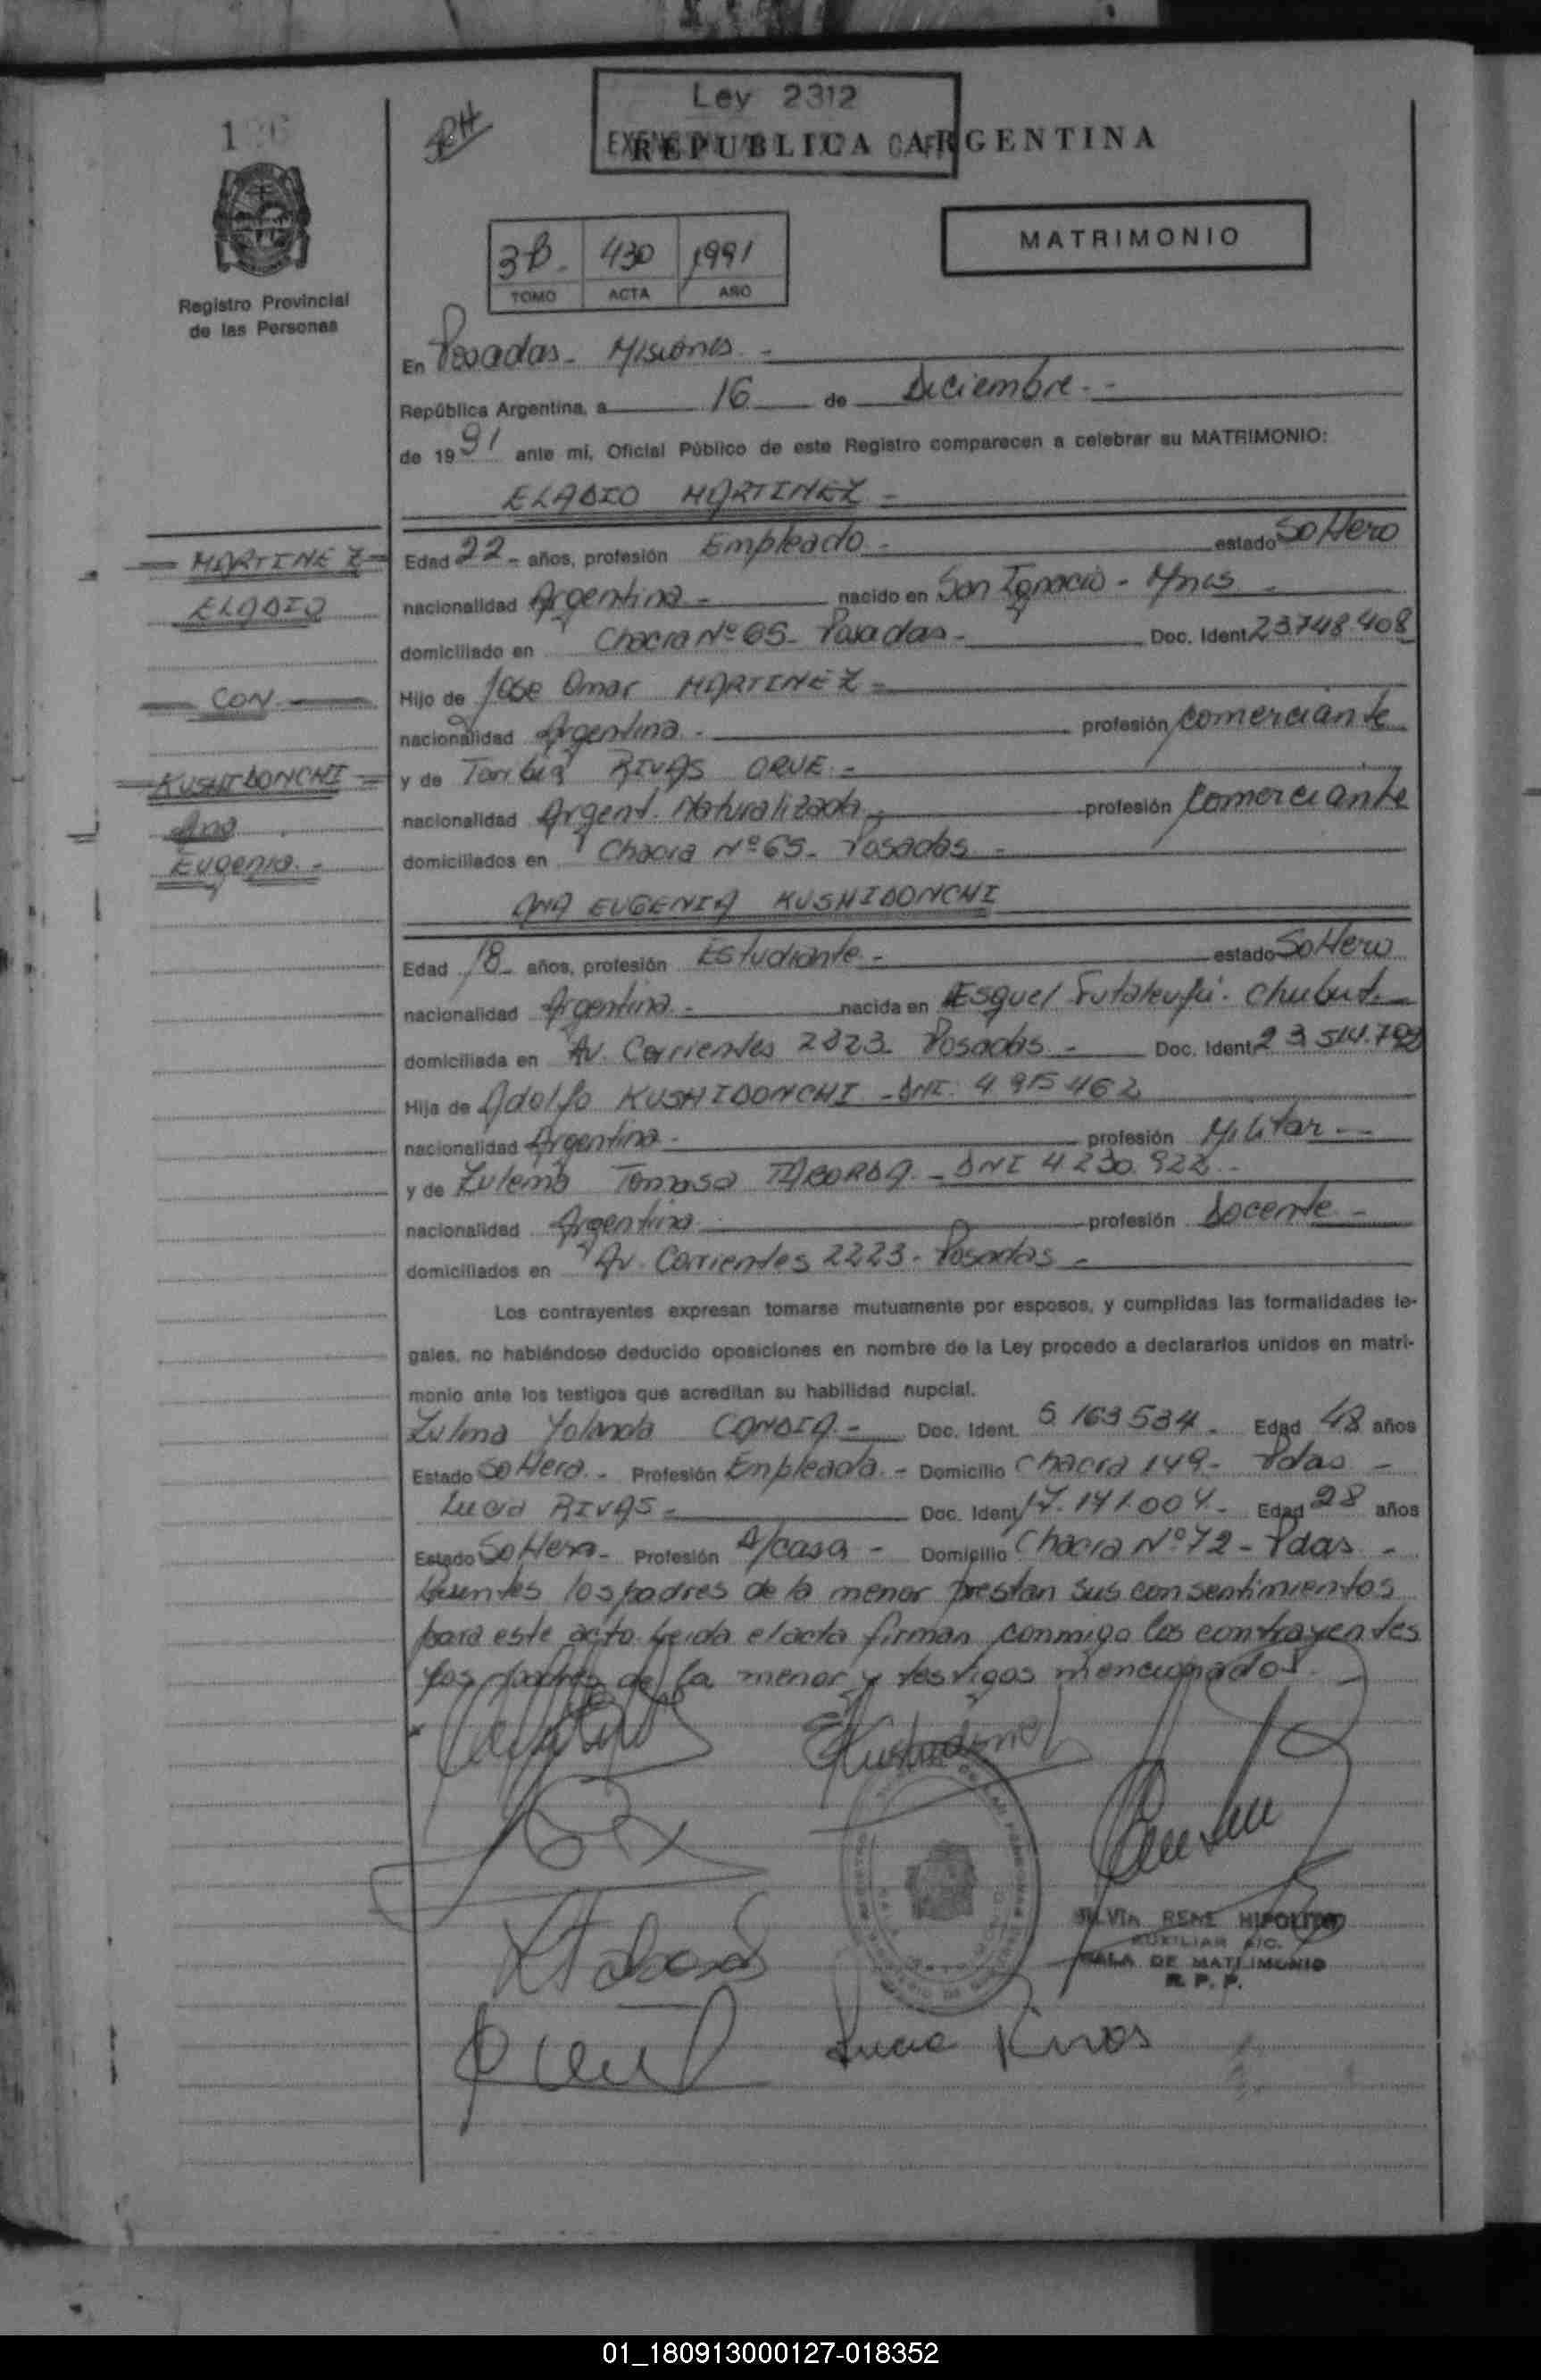 Ley 2312
REPUBLICA ARGENTINA
MATRIMONIO
3B. 430 1991
TOMO ACTA AÑO
Registro Provincial
de las Personas
En Posadas - Misiones. -
República Argentina, a 16 de Diciembre. -
de 1991 ante mí, Oficial Público de este Registro comparecen a celebrar su MATRIMONIO:
ELADIO MARTINEZ -
MARTINEZ
ELADIO
CON
KUSHIDONCHI
Ana
Eugenia. -
Edad 22 - años, profesión Empleado - estado Soltero
nacionalidad Argentina - nacido en San Ignacio - Mnes -
domiciliado en Chacra Nº 65 - Posadas - Doc. Ident. 23.748.408
Hijo de Jose Omar MARTINEZ -
nacionalidad Argentina. - profesión comerciante
y de Toribia RIVAS ORUE. -
nacionalidad Argent. Naturalizada - profesión Comerciante
domiciliados en Chacra Nº 65 - Posadas -
ANA EUGENIA KUSHIDONCHI
Edad 18 - años, profesión Estudiante - estado Soltero
nacionalidad Argentina - nacida en Esquel Futaleufú - Chubut -
domiciliada en Av. Corrientes 2223 - Posadas - Doc. Ident. 23.514.
Hija de Adolfo KUSHIDONCHI - DNI. 4 915 462
nacionalidad Argentina - profesión Militar -
y de Zulema Tomasa TABORDA - DNI 4.230.922 -
nacionalidad Argentina profesión Docente -
domiciliados en Av. Corrientes 2223 - Posadas -
Los contrayentes expresan tomarse mutuamente por esposos, y cumplidas las formalidades le-
gales, no habiéndose deducido oposiciones en nombre de la Ley procedo a declararlos unidos en matri-
monio ante los testigos que acreditan su habilidad nupcial.
Zulma Yolanda CONDIA - Doc. Ident. 5.163.534 - Edad 48 años
Estado Soltera. - Profesión Empleada - Domicilio Chacra 149 - Pdas -
Lucia RIVAS - Doc. Ident. 17.141.004 - Edad 28 años
Estado Soltera - Profesión A/casa - Domicilio Chacra Nº 72 - Pdas -
los padres de la menor prestan sus consentimientos
para este acto. Leida el acta firman conmigo los contrayentes
los padres de la menor y testigos mencionados.
RENE HIPOLITO
AUXILIAR A/C.
SALA DE MATRIMONIO
R. P. P.
Lucia Rivas
01_180913000127-018352